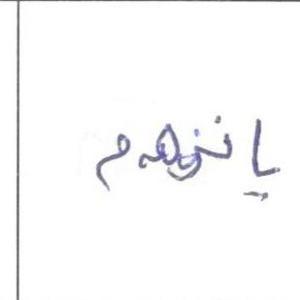 یانزدهم